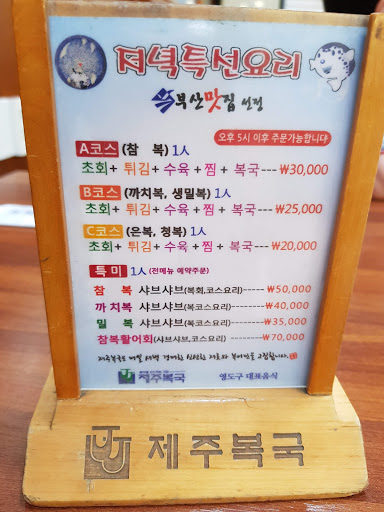 저녁특선요리
부산맛집 선정
오후 5시 이후 주문가능합니다
A코스 (참 복) 1人
초회+ 튀김+ 수육 +찜 + 복국---₩30,000
B코스 (까치복, 생밀복) 1人
초회+ 튀김+ 수육 +찜 + 복국---₩25,000
C코스 (은복, 청복) 1人
초회+ 튀김+ 수육 +찜 + 복국---₩20,000
특미 1人 (전메뉴 예약주문)
참 복 샤브샤브(복회,코스요리)-----₩50,000
까치복 샤브샤브(복코스요리)-------₩40,000
밀 복 샤브샤브(복코스요리)-------₩35,000
참복활어회(샤브샤브,코스요리) --------₩70,000
제주복국은 매일 새벽 경매한 싱싱한 재료와 부재만을 고집합니다.
제주복국 영도구 대표음식
제주복국